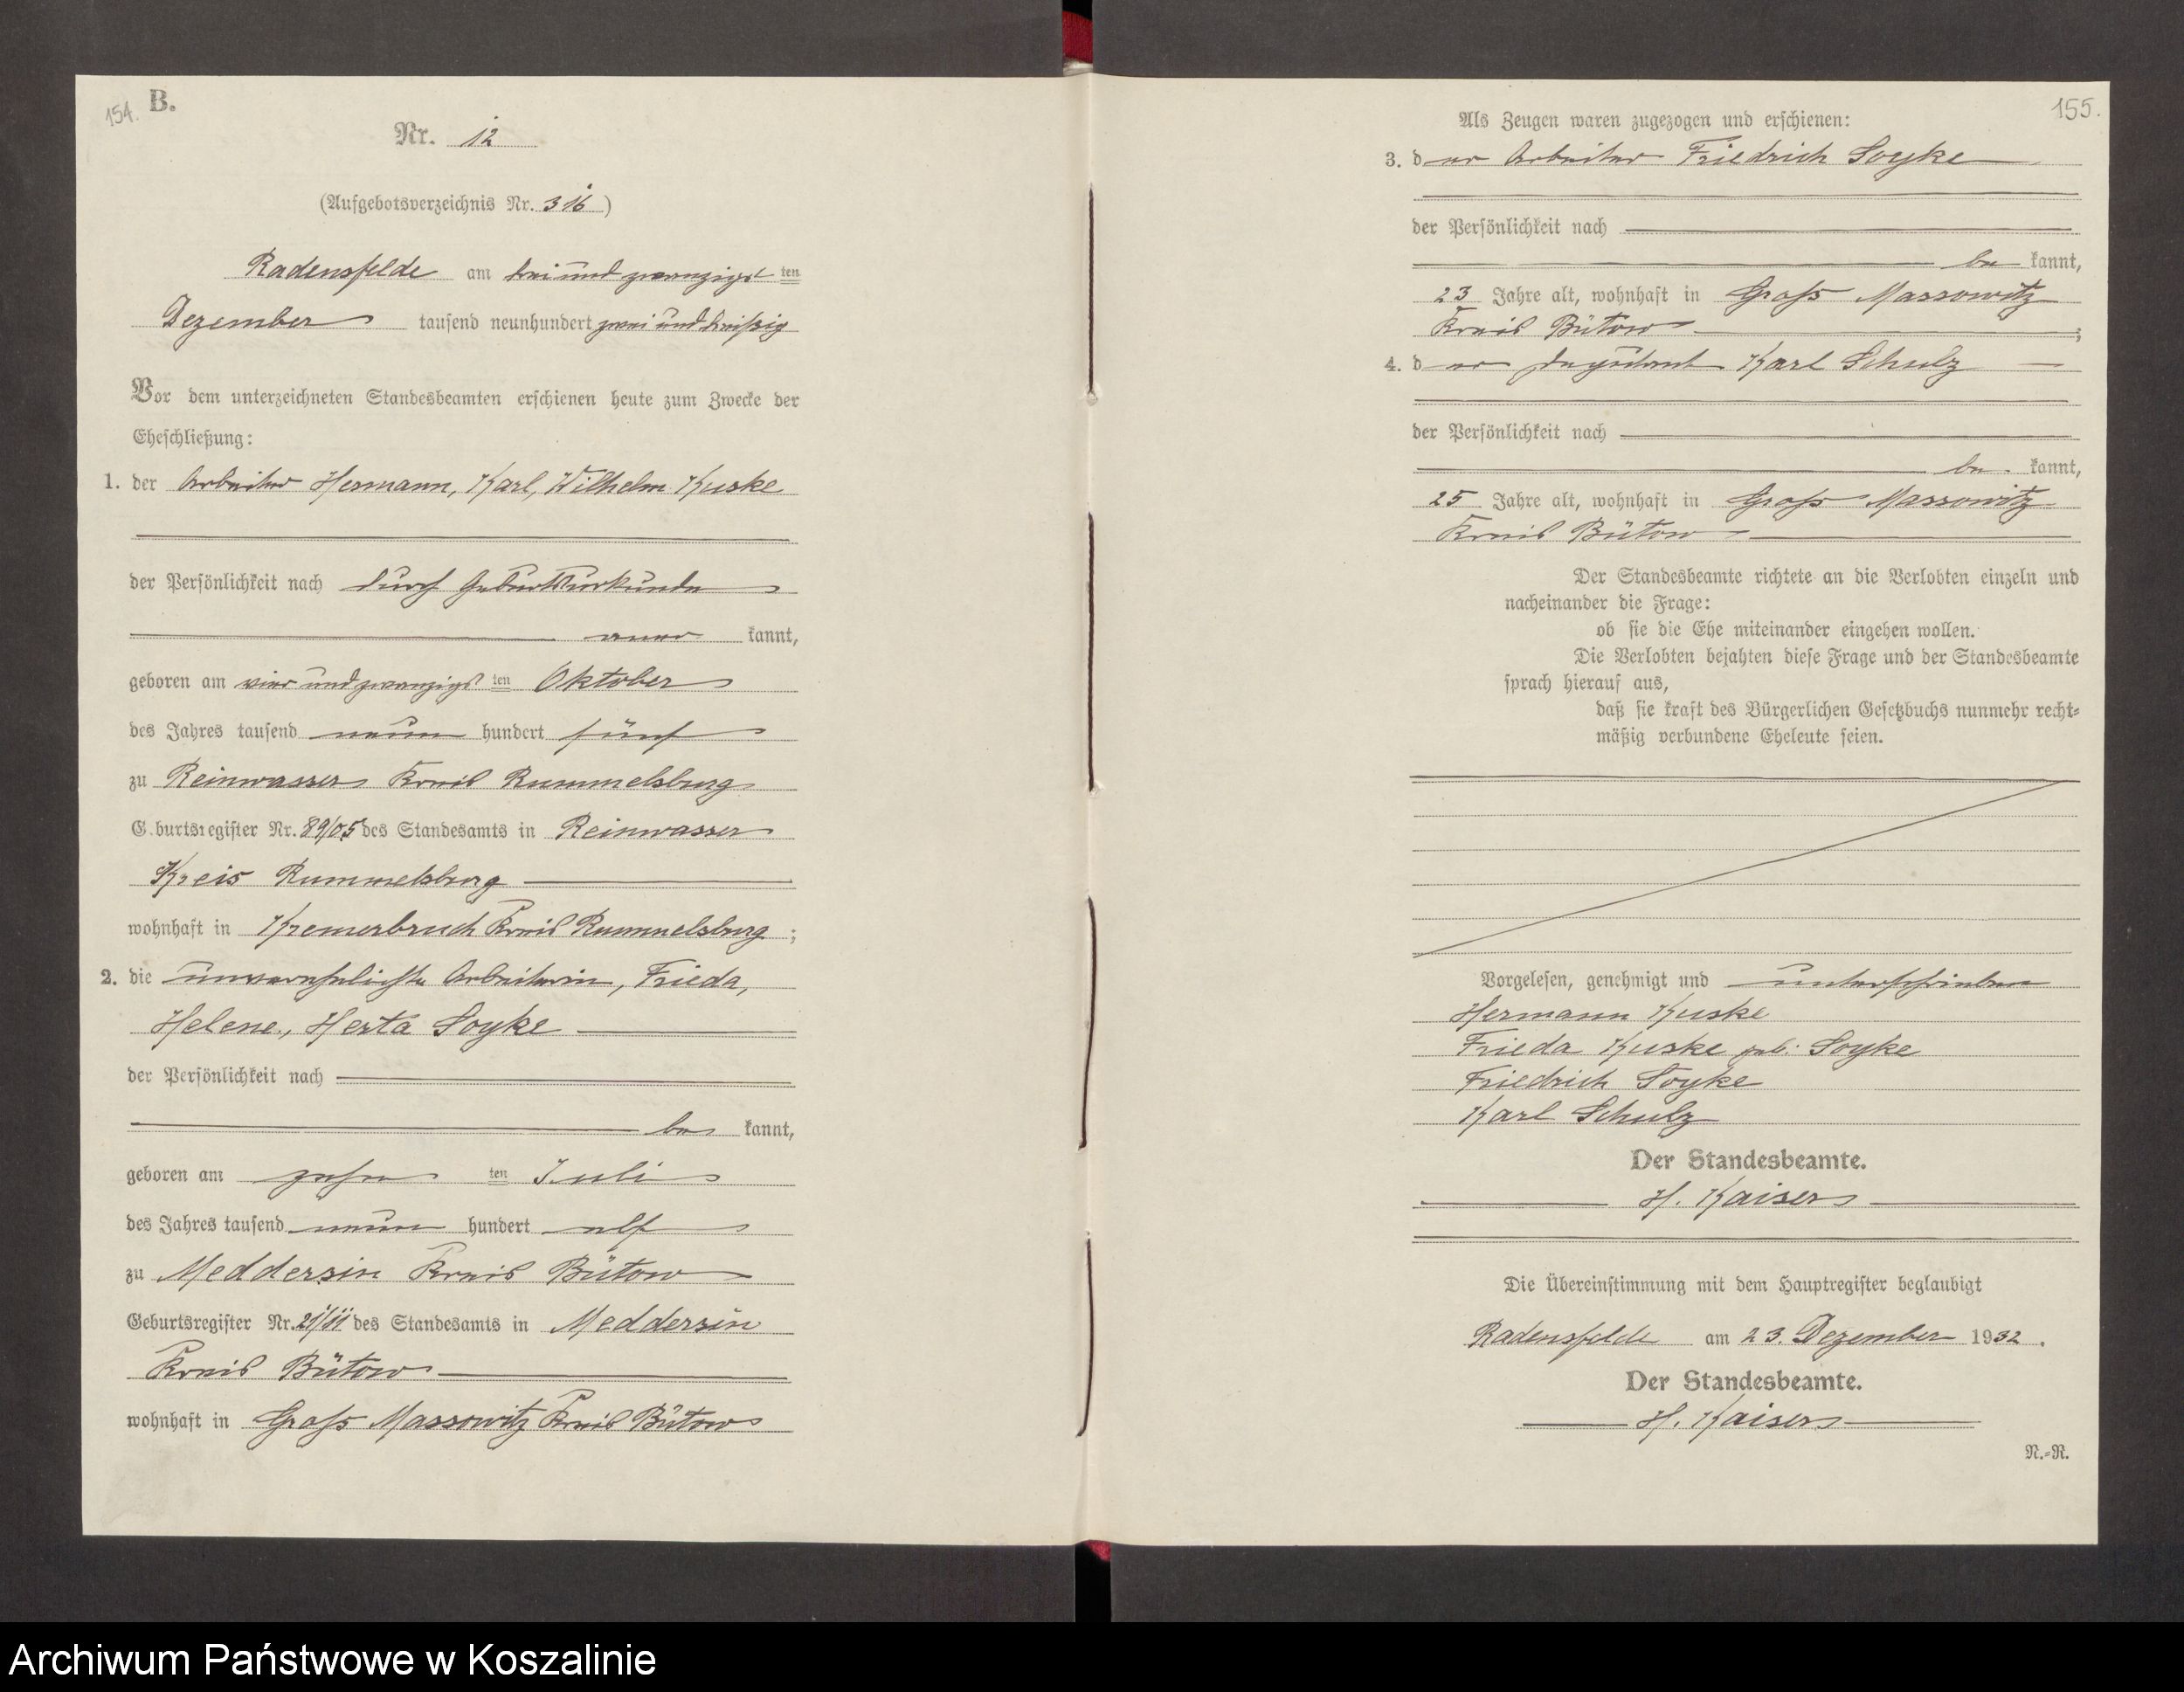 154.
B.
Nr. 12
(Aufgebotsverzeichnis Nr. 316)
Radensfelde am drei und zwanzigst ten
Dezember tausend neunhundert zwei und dreißig
Vor dem unterzeichneten Standesbeamten erschienen heute zum Zwecke der
Eheschließung:
1. der Arbeiter Hermann, Karl, Wilhelm Kuske
der Persönlichkeit nach durch Geburtsurkunde
aner kannt,
geboren am vier und zwanzigst ten Oktober
des Jahres tausend neun hundert fünf
zu Reinwasser Kreis Rummelsburg
Geburtsregister Nr. 89/05 des Standesamts in Reinwasser
Kreis Rummelsburg
wohnhaft in Kremerbruch Kreis Rummelsburg;
2. die unverehelichte Arbeiterin, Frieda,
Helene, Herta Soyke
der Persönlichkeit nach
be kannt,
geboren am zehn ten Juli
des Jahres tausend neun hundert elf
zu Meddersin Kreis Bütow
Geburtsregister Nr. 21/11 des Standesamts in Meddersin
Kreis Bütow
wohnhaft in Groß Massowitz Kreis Bütow
155.
Als Zeugen waren zugezogen und erschienen:
3. d er Arbeiter Friedrich Soyke
der Persönlichkeit nach
be kannt,
23 Jahre alt, wohnhaft in Groß Massowitz
Kreis Bütow;
4. d er Karl Schulz
der Persönlichkeit nach
be kannt,
25 Jahre alt, wohnhaft in Groß Massowitz
Kreis Bütow
Der Standesbeamte richtete an die Verlobten einzeln und
nacheinander die Frage:
ob sie die Ehe miteinander eingehen wollen.
Die Verlobten bejahten diese Frage und der Standesbeamte
sprach hierauf aus,
daß sie kraft des Bürgerlichen Gesetzbuchs nunmehr recht-
mäßig verbundene Eheleute seien.
Vorgelesen, genehmigt und unterschrieben
Hermann Kuske
Frieda Kuske geb. Soyke
Friedrich Soyke
Karl Schulz
Der Standesbeamte.
H. Kaiser
Die Übereinstimmung mit dem Hauptregister beglaubigt
Radensfelde am 23. Dezember 1932.
Der Standesbeamte.
H. Kaiser
N.-R.
Archiwum Państwowe w Koszalinie